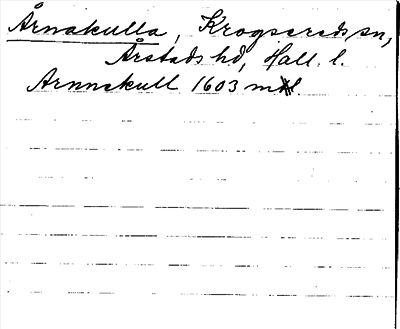 Årnakulla, Krogsereds sn,
Årstads hd, Hall. l.
Arnnekull 1603